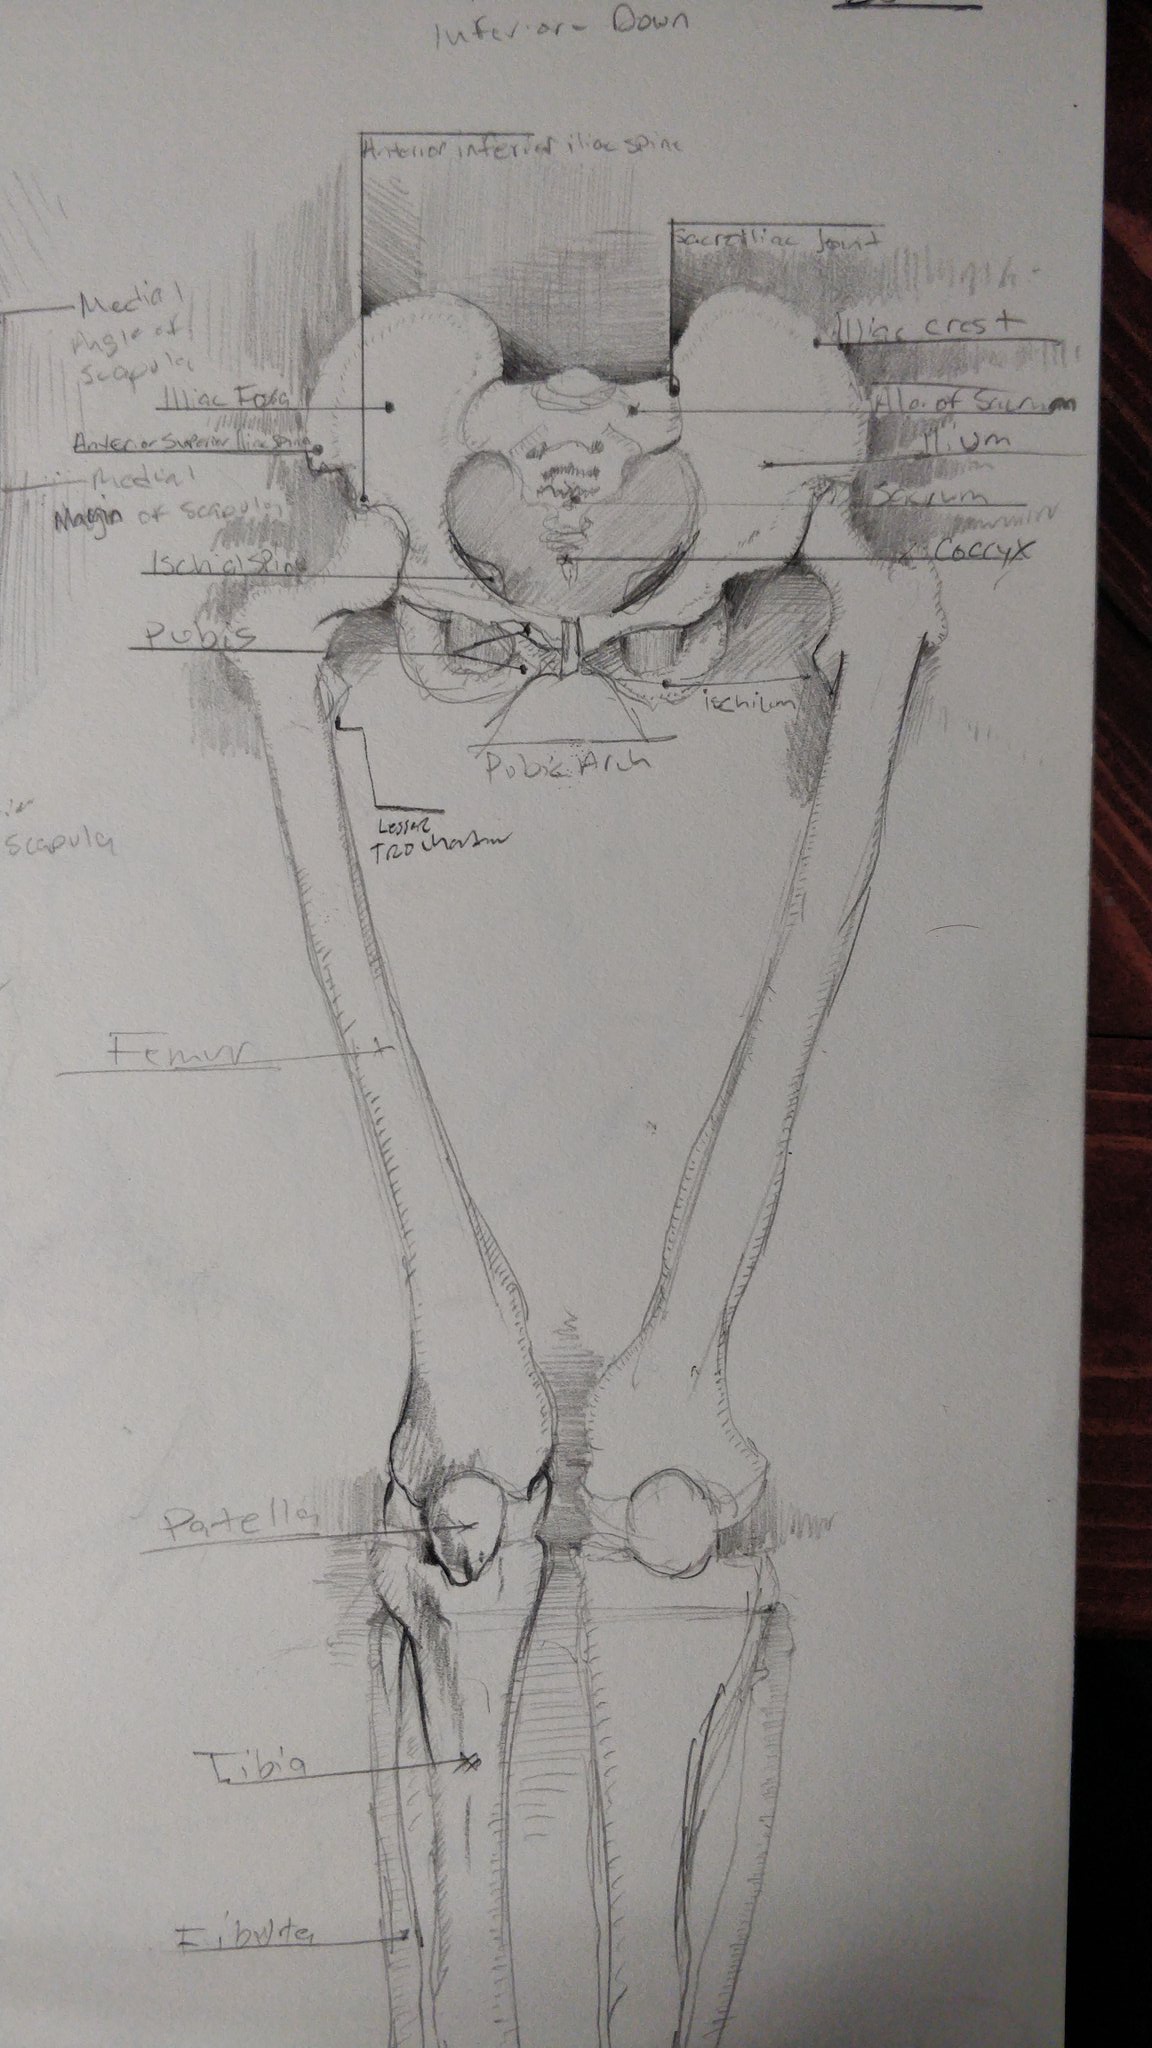 Inferior - Down
Anterior inferior iliac spine
Sacroiliac Joint
Medial
Angle of
Scapula
Iliac crest
Iliac Fosa
Ala of Sacrum
Anterior Superior Iliac Spine
Ilium
Medial
Margin of Scapula
Sacrum
Coccyx
Ischial Spine
Pubis
ischium
Pubic Arch
Lesser
Trochanter
Scapula
Femur
Patella
Tibia
Fibula